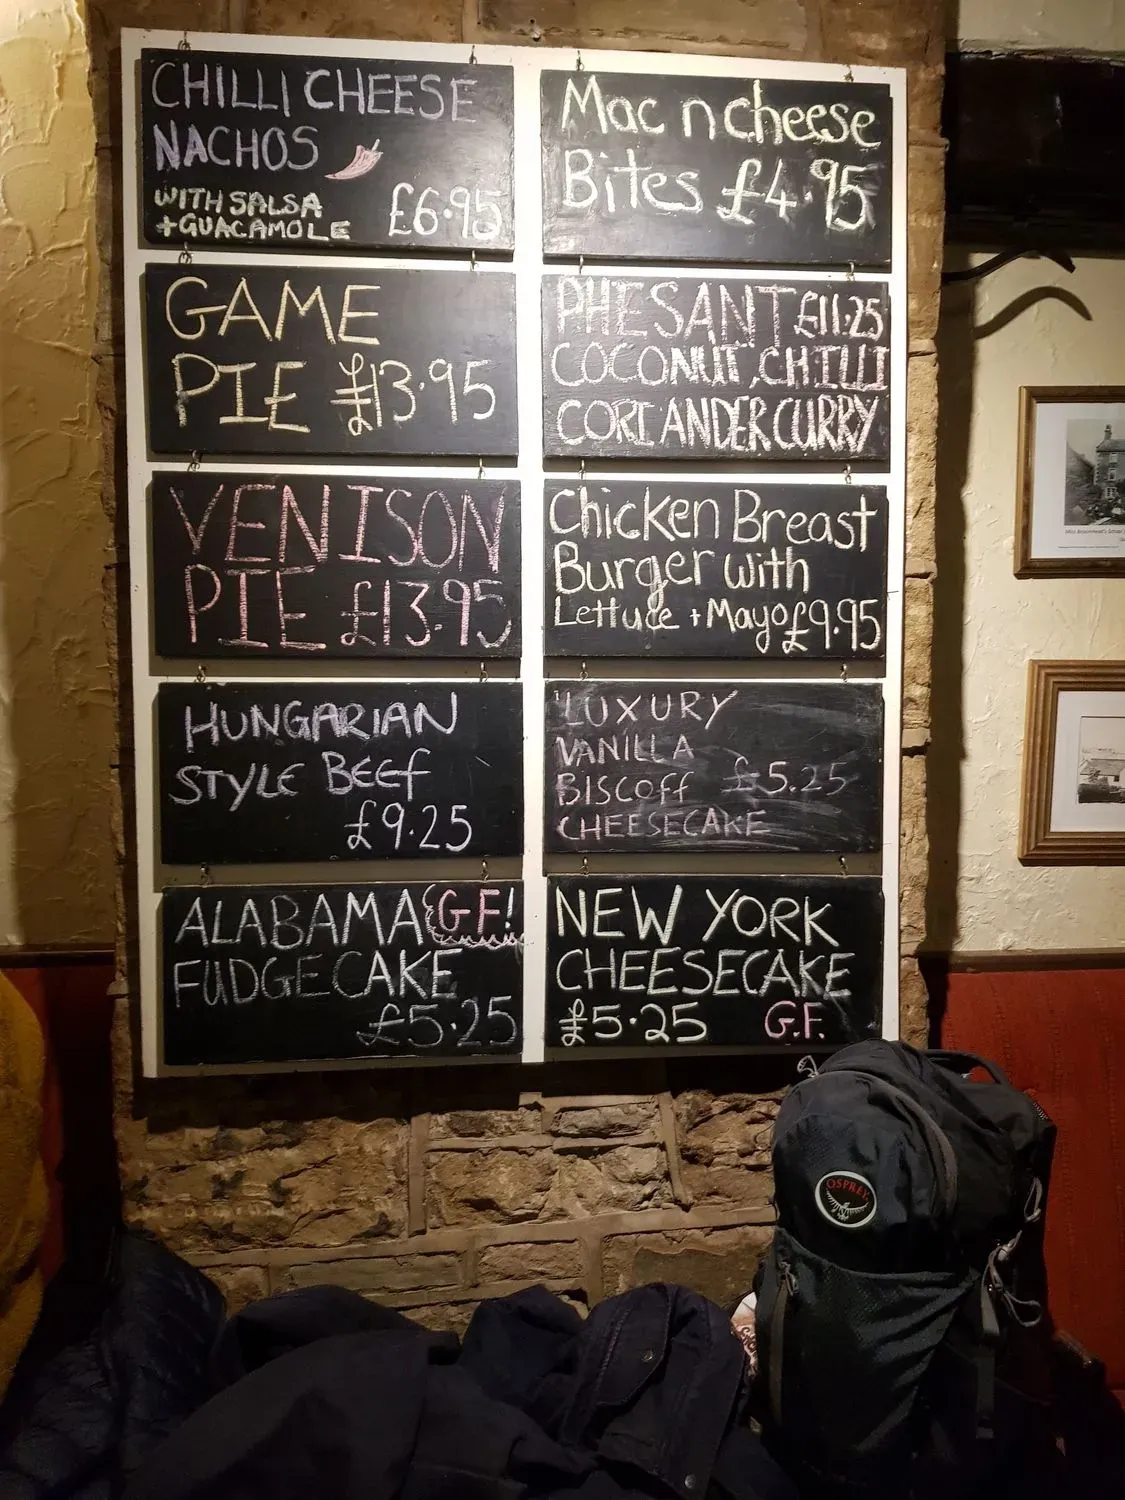 CHILLI CHEESE
NACHOS
WITH SALSA
+GUACAMOLE £6.95
Mac n cheese
Bites £4.95
GAME
PIE £13.95
PHESANT £11.25
COCONUT, CHILLI
CORIANDER CURRY
VENISON
PIE £13.95
Chicken Breast
Burger with
Lettuce + Mayo £9.95
HUNGARIAN
STYLE BEEF
£9.25
LUXURY
VANILLA
BISCOFF £5.25
CHEESECAKE
ALABAMA G.F!
FUDGECAKE
£5.25
NEW YORK
CHEESECAKE
£5.25 G.F.
OSPREY